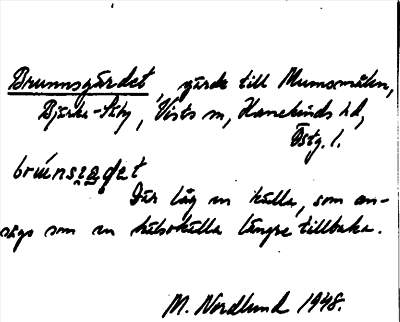 Brunnsgärdet, gärde till Mumsmålen,
Bjärka-Säby, Vists sn, Hanekinds hd,
Östg. l.
brúnsɪ̯ad̯et
Där låg en källa, som an-
sågs som en hälsokälla längre tillbaka.
M. Nordlund 1948.